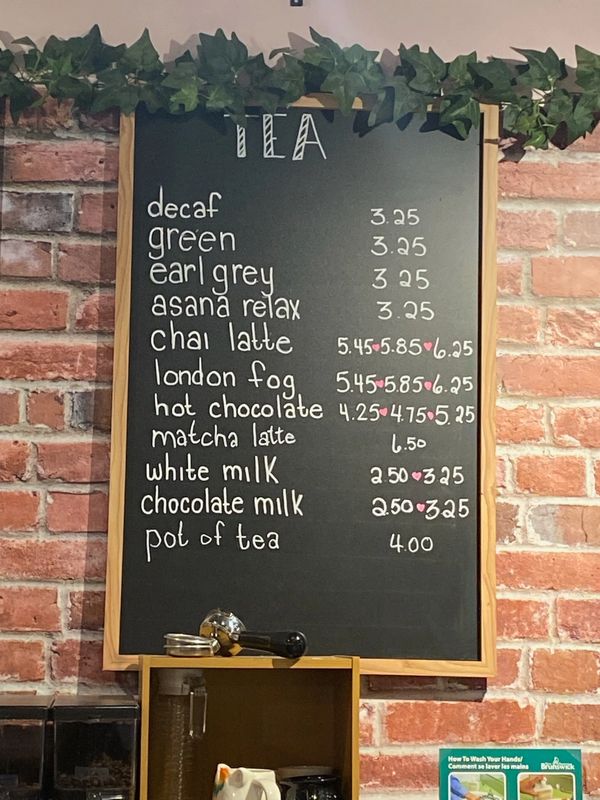 TEA
decaf 3.25
green 3.25
earl grey 3 25
asana relax 3.25
chai latte 5.45♥5.85♥6.25
london fog 5.45♥5.85♥6.25
hot chocolate 4.25♥4.75♥5.25
matcha latte 6.50
white milk 2.50♥3.25
chocolate milk 2.50♥3.25
pot of tea 4.00
How To Wash Your Hands/
Comment se laver les mains
Brunswick